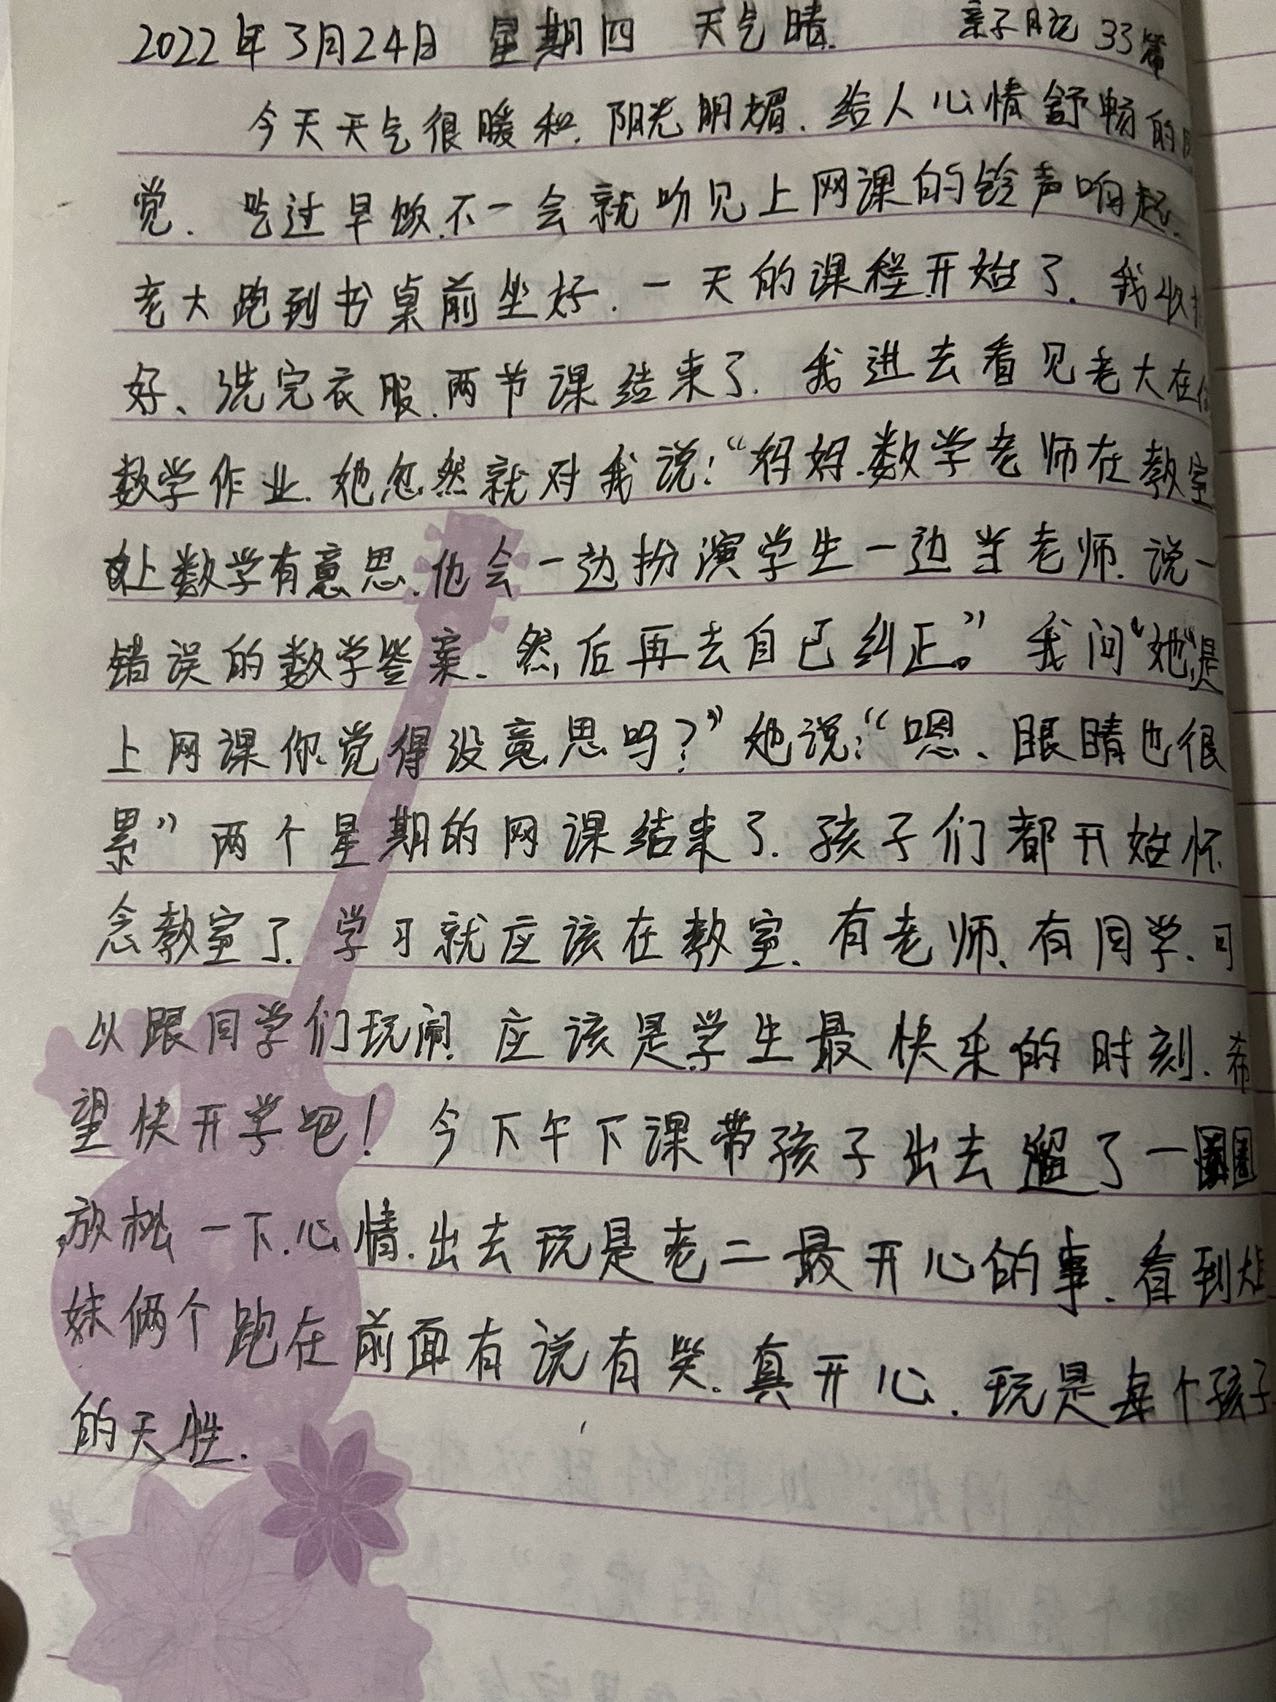 2022年3月24日 星期四 天气晴. 亲子日记 33篇
今天天气很暖和.阳光明媚.给人心情舒畅的
觉. 吃过早饭.不一会就吩见上网课的铃声响起.
老大跑到书桌前坐好.一天的课程开始了.我收
好、洗完衣服.两节课结束了.我进去看见老大在
数学作业.她忽然就对我说:“妈妈.数学老师在教室
上数学有意思.他会一边扮演学生一边当老师.说一
错误的数学答案.然后再去自己纠正。”我问“她“是
上网课你觉得没意思吗?”她说:“嗯、眼睛也很
累” 两个星期的网课结束了.孩子们都开始怀
念教室了.学习就应该在教室.有老师.有同学.可
以跟同学们玩闹.应该是学生最快乐的时刻.希
望快开学吧! 今下午下课带孩子出去遛了一圈
放松一下.心情.出去玩是老二最开心的事.看到
妹俩个跑在前面有说有笑.真开心.玩是每个孩子
的天性.